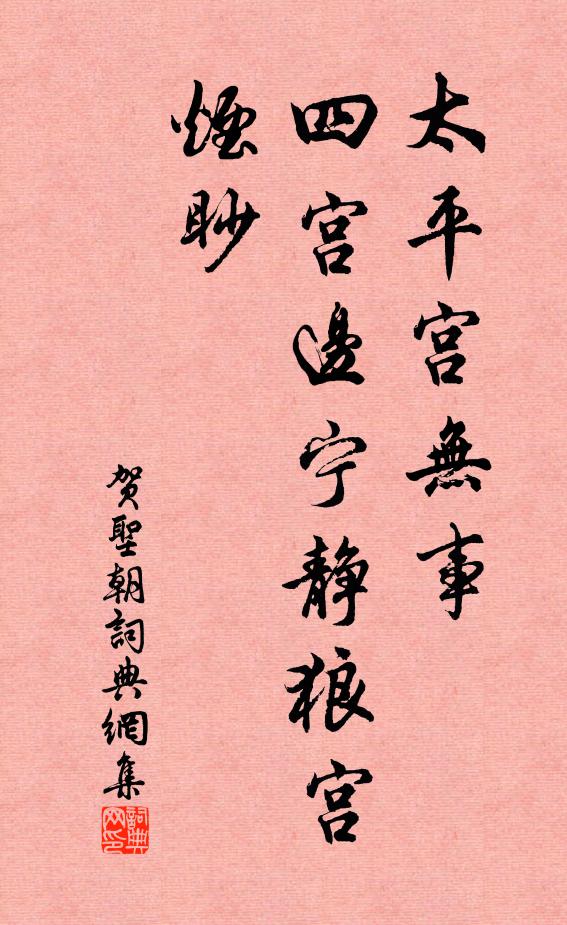 太平宫無事
四宫邊宁静狼宫
煙眇
贺聖朝詞典網集
詞典网印